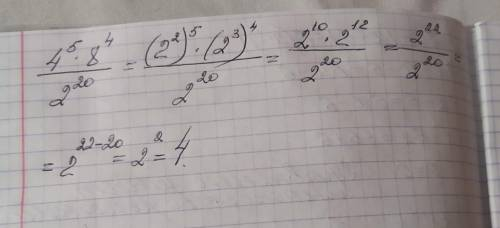 4⁵·8⁴/2²⁰ = (2²)⁵·(2³)⁴/2²⁰ = 2¹⁰·2¹²/2²⁰ = 2²²/2²⁰ =
= 2²²⁻²⁰ = 2² = 4.